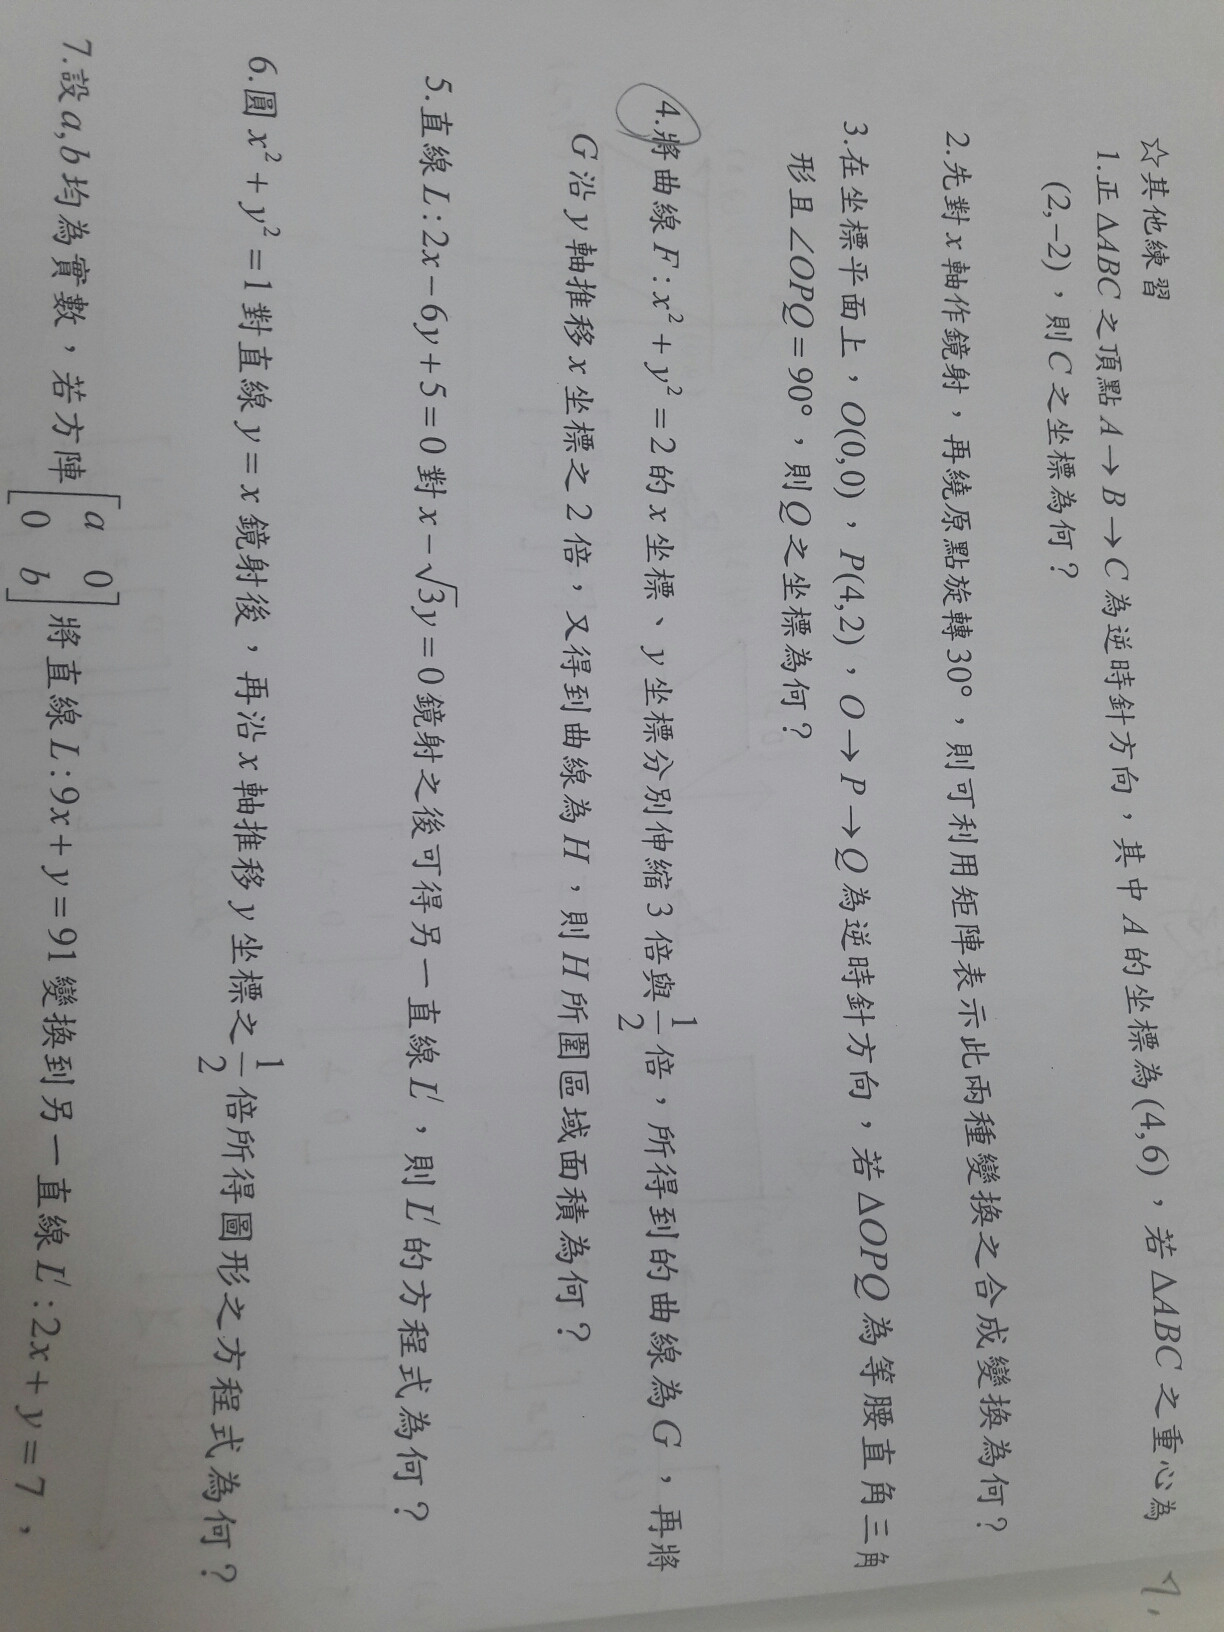 ☆其他練習
1.正ΔABC之頂點A→B→C為逆時針方向，其中A的坐標為(4,6)，若ΔABC之重心為
(2,−2)，則C之坐標為何？
2.先對x軸作鏡射，再繞原點旋轉30°，則可利用矩陣表示此兩種變換之合成變換為何？
3.在坐標平面上，O(0,0)，P(4,2)，O→P→Q為逆時針方向，若ΔOPQ為等腰直角三角
形且∠OPQ=90°，則Q之坐標為何？
4.將曲線F:x²+y²=2的x坐標、y坐標分別伸縮3倍與1/2倍，所得到的曲線為G，再將
G沿y軸推移x坐標之2倍，又得到曲線為H，則H所圍區域面積為何？
5.直線L:2x−6y+5=0對x−√3y=0鏡射之後可得另一直線L′，則L′的方程式為何？
6.圓x²+y²=1對直線y=x鏡射後，再沿x軸推移y坐標之1/2倍所得圖形之方程式為何？
7.設a,b均為實數，若方陣[a 0; 0 b]將直線L:9x+y=91變換到另一直線L′:2x+y=7，